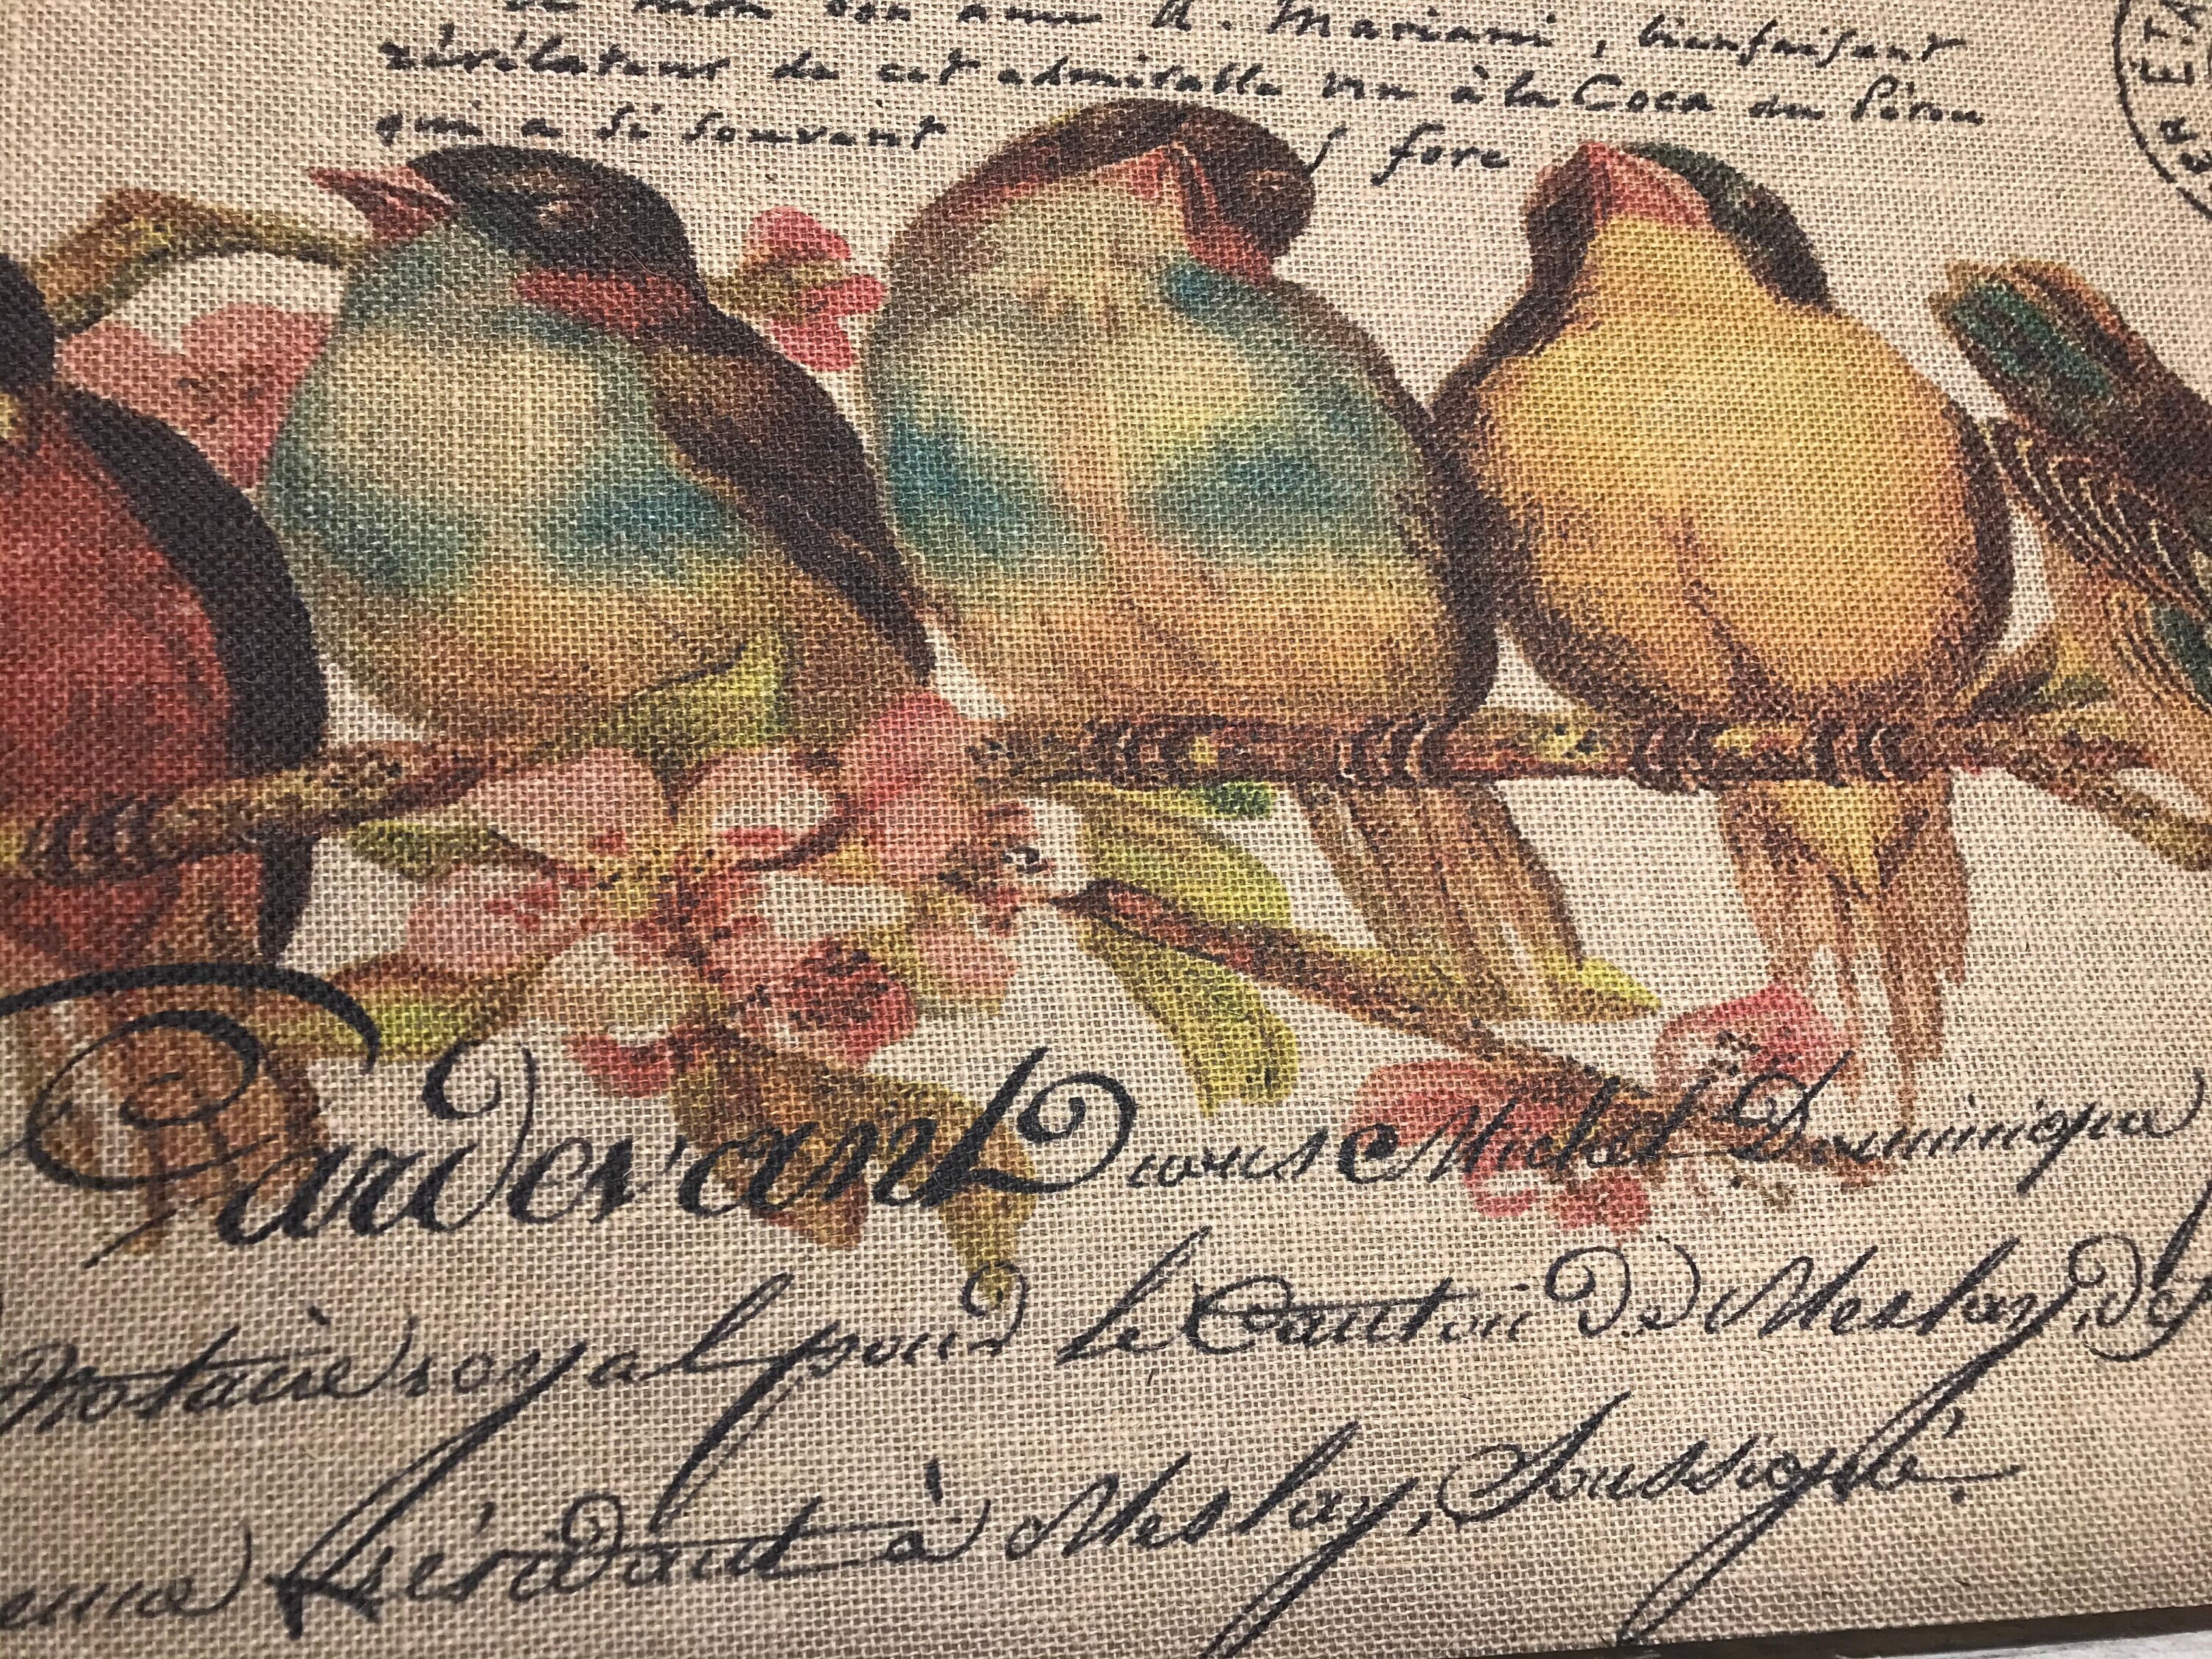 de mon A. Mariani, bienfaisant
révélateur de cet admirable vin à la Coca du Pérou
qui a si souvent
fore
R ETA
Pardevant nous Michel Dominique
Notaire royal pour le Canton De Meslay, De
Résidant à Meslay, Soussigné.